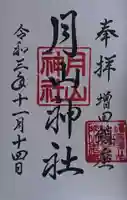 奉拝
月山神社
月山神社
令和三年十一月十四日